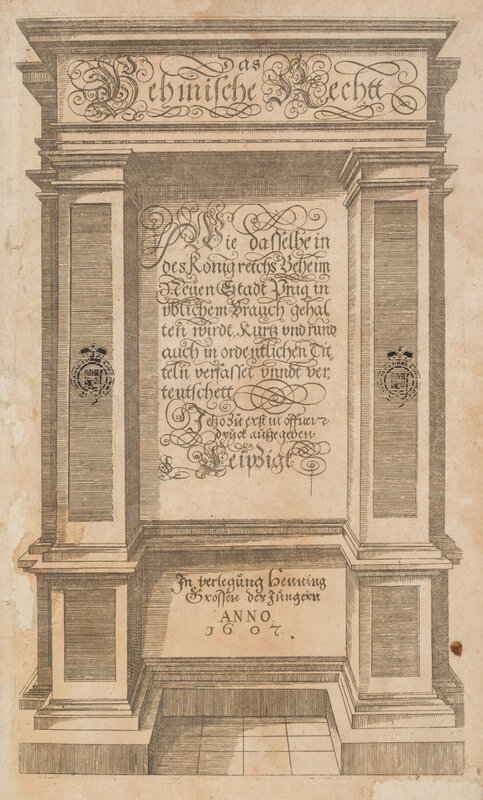 das
Behmische Rechtt
Wie dasselbe in
des Königreichs Beheim
Neuen Stadt Prag in
üblichem Brauch gehal
ten würdt, Kurtz vnd rund
auch in ordentlichen Tit
teln verfasset vnndt ver
teutschett
Jtzo zu erst in offner
druck außgegeben
Leipzigk
Jn verlegung Henning
Grossen des Jüngern
ANNO
1607.